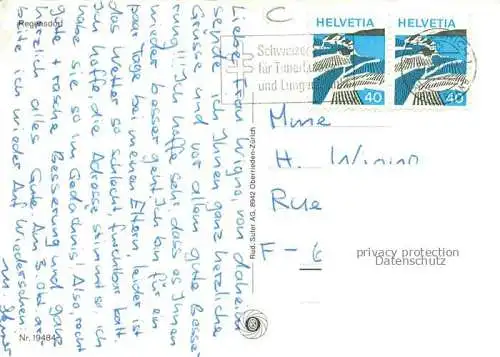 Regensdorf
Liebe Frau Wigno, von daheim
sende ich Ihnen ganz herzliche
Grüsse und vor allem gute Besse-
rung!! Ich hoffe sehr, dass es Ihnen
wieder besser geht. Ich bin für ein
paar Tage bei meinen Eltern, leider ist
das Wetter so schlecht, furchtbar kalt.
Ich hoffe die Adresse stimmt so, ich
habe sie so im Gedächtnis! Also, recht
gute + rasche Besserung und ganz
herzlich alles Gute. Am 3. Okt. ar-
beite ich wieder. Auf Wiedersehen
Nr. 19484
Rud. Suter AG, 8942 Oberrieden-Zürich
C
HELVETIA
40
HELVETIA
40
Schweizer
für Tuberk
und Lungen
Mme
H.
Rue
F-6
privacy protection
Datenschutz